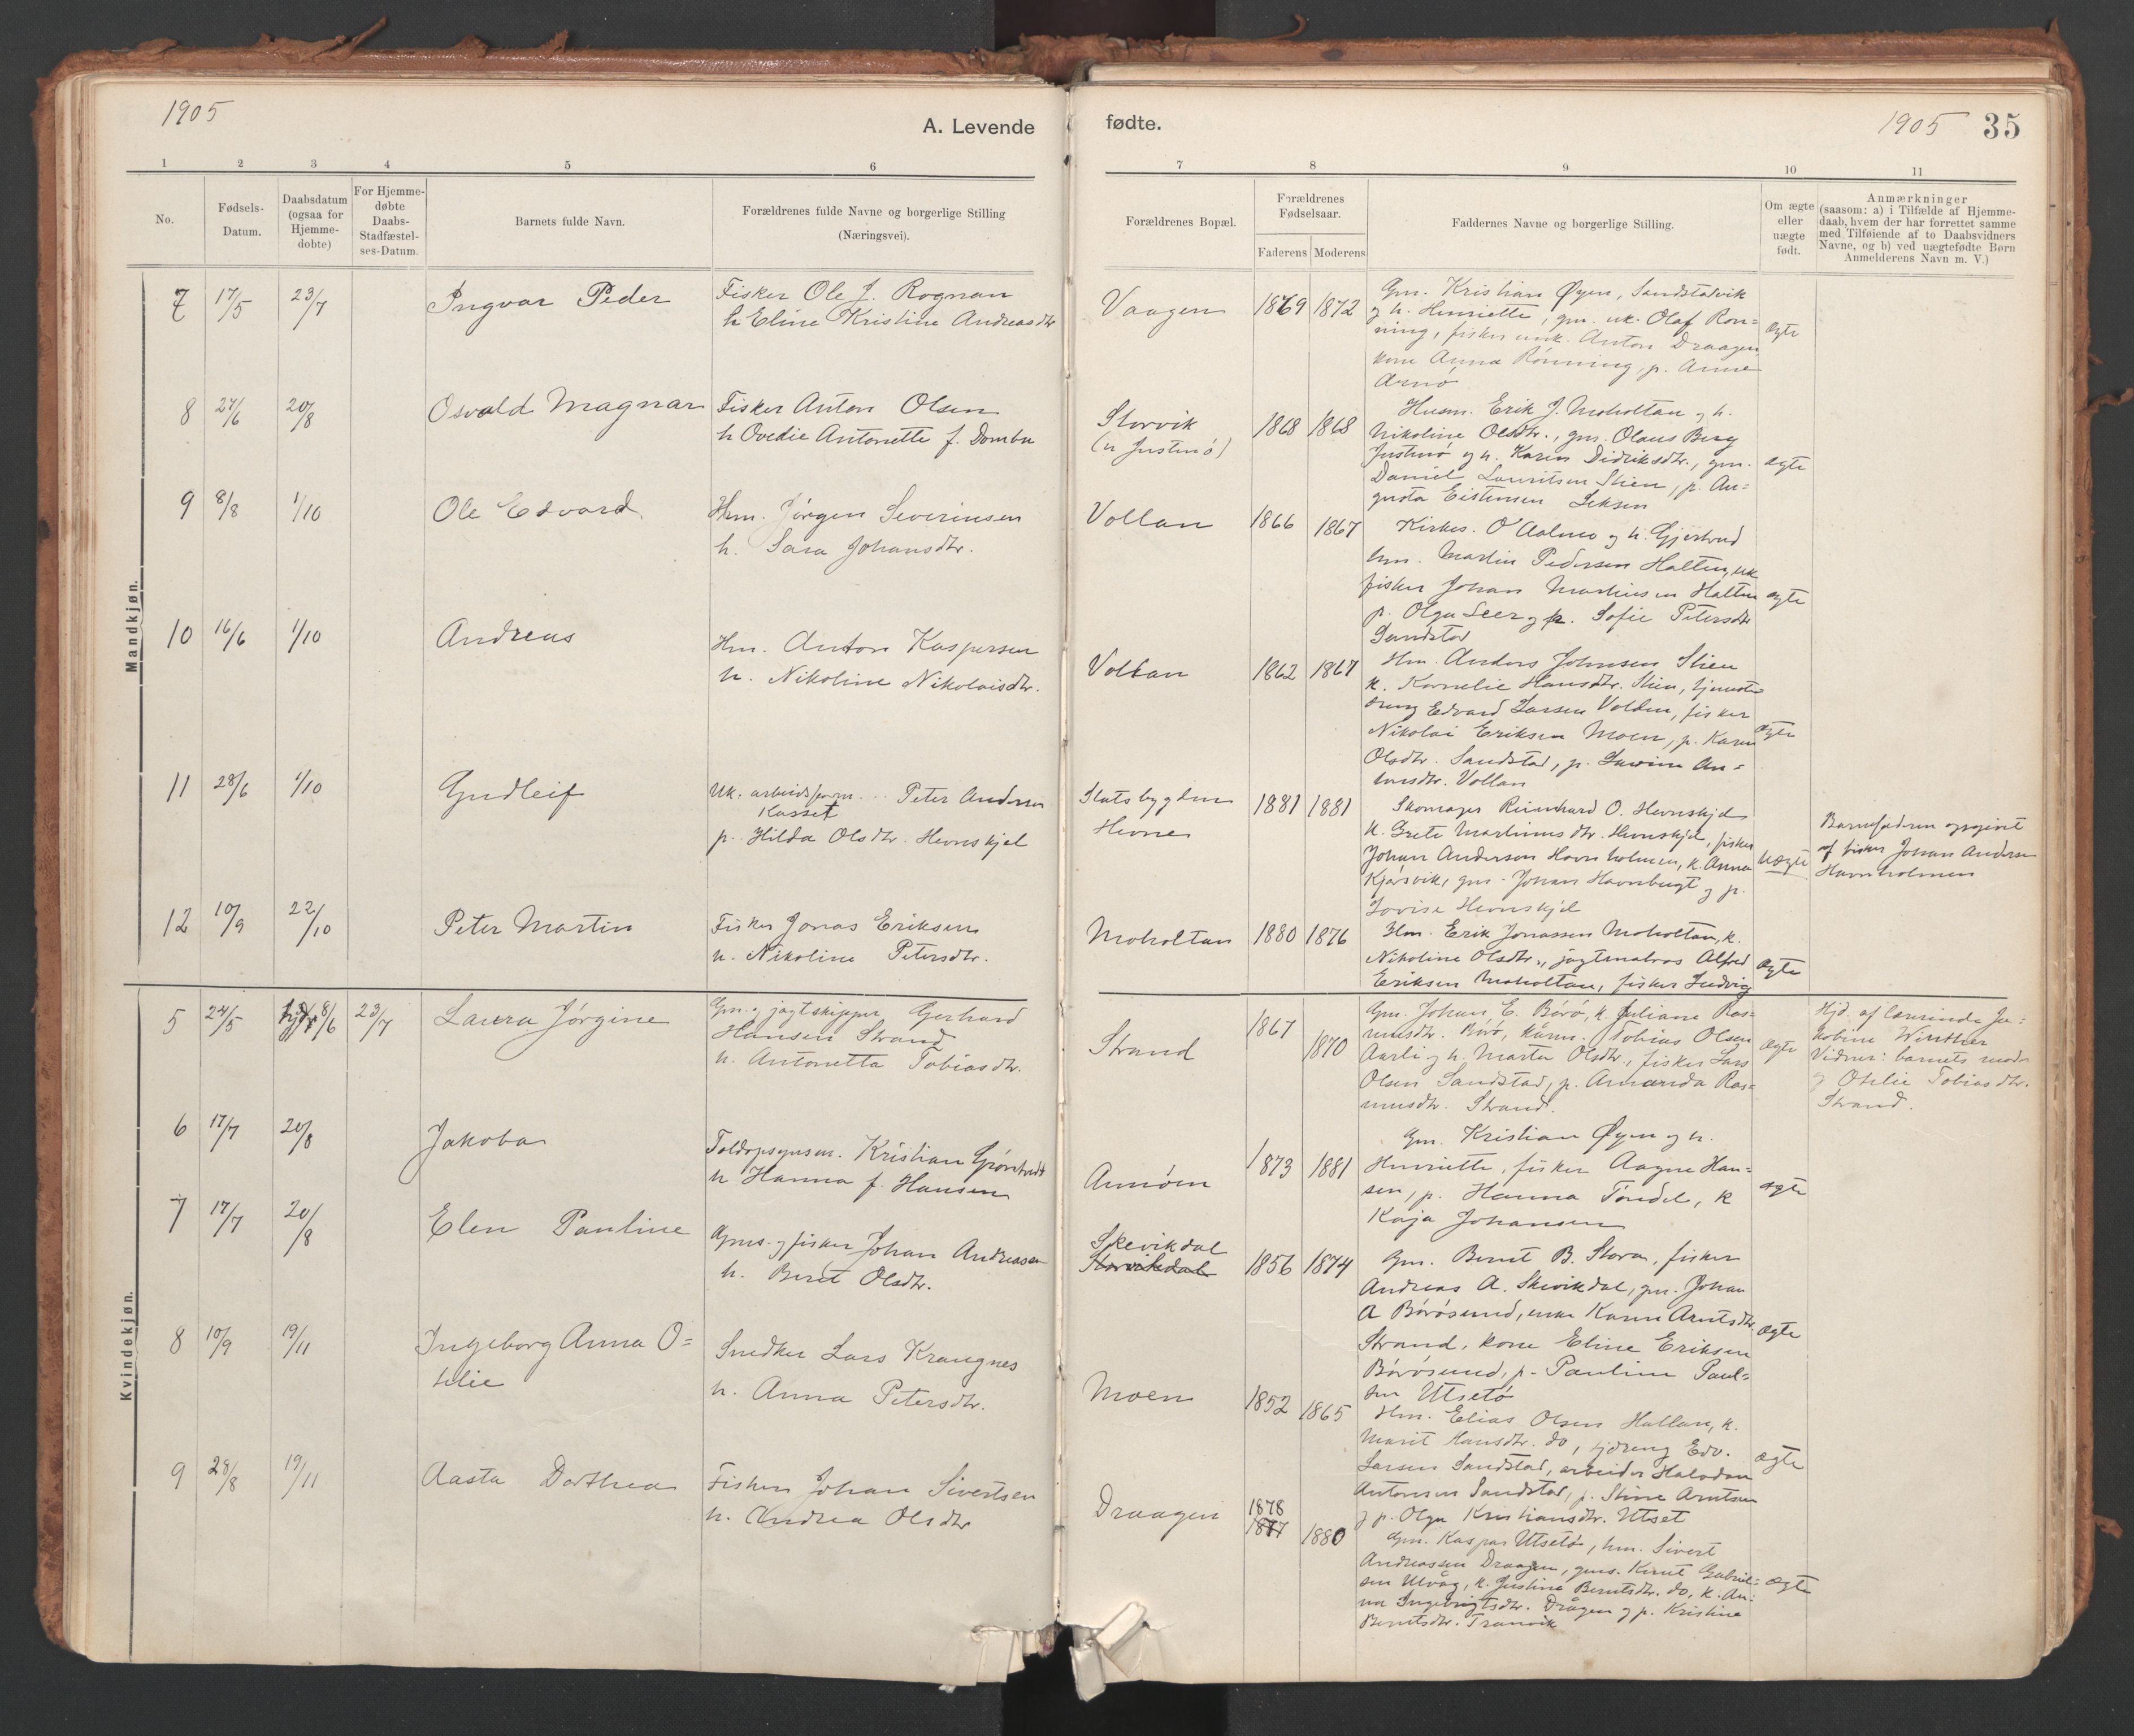 1905
A. Levende
fødte.
1905 35
1 2 3 4 5 6
No.
Fødsels-
Datum.
Daabsdatum
(ogsaa for
Hjemme-
døbte)
For Hjemme-
døbte
Daabs-
Stadfæstel-
ses-Datum.
Barnets fulde Navn.
Forældrenes fulde Navne og borgerlige Stilling
(Næringsvei).
7 8 9 10 11
Forældrenes Bopæl.
Forældrenes
Fødselsaar.
Faderens Moderens
Faddernes Navne og borgerlige Stilling.
Om ægte
eller
uægte
født.
Anmærkninger
(saasom: a) i Tilfælde af Hjemme-
daab, hvem der har forrettet samme
med Tilføiende af to Daabsvidners
Navne, og b) ved uægtefødte Børn
Anmelderens Navn m. V.)
Mandkjøn.
7 17/5 23/7 Ingvar Peder
Fisker Ole J. Rognan
h Eline Kristine Andreasdtr
Vaagen 1869 1872
Gm. Kristian Øyen, Sandstadvik
og h. Henriette, gm. uk. Olaf Røn=
ning, fisker unk. Anton Draagen,
kone Anna Rønning, p. Anne
Arnø
ægte
8 27/6 20/8 Osvald Magnar
Fisker Anton Olsen
h Ovedie Antonette f. Dombu
Storvik
(n Justnø)
1868 1868
Husm. Erik J. Moholtan og h.
Nikoline Olsdtr., gm. Olaus Berg
Justnø og h. Karen Didriksdtr., gm.
Daniel Lauritsen Stien, p. Au=
gusta Eistensen Leksen
ægte
9 8/8 1/10 Ole Edvard
Hm. Jørgen Severinsen
h. Sara Johansdtr.
Vollan 1866 1867
Kirkes. O Aalmo og h. Gjertrud
hm. Martin Pedersen Halten, uk
fisker Johan Martinsen Halten
p. Olga Seer og p. Sofie Petersdtr
Sandstad
ægte
10 16/6 1/10 Andreas
Hm. Anton Kaspersen
h. Nikoline Nikolaisdtr.
Vollan 1862 1867
Hm. Anders Johnsen Stien
k. Kornelie Hansdtr. Stien, tjeneste
dreng Edvard Larsen Volden, fisker
Nikolai Eriksen Moen, p. Karen
Olsdtr. Sandstad, p. Lovine An=
tonsdtr. Vollan
ægte
11 28/6 1/10 Gudleif
Uk. arbeidsform... Peter Andersen
Kasset
p. Hilda Olsdtr. Hevnskjel
Statsbygden
Hevne
1881 1881
Skomager Reinhard O. Hevnskjel
k. Grete Martinusdtr. Hevnskjel, fisker
Johan Andersen Havnholmen, k. Anna
Kjørsvik, gm. Johan Havnbugt og p.
Lovise Hevnskjel
Uægte
Barnefaderen opgivet
af fisker Johan Andersen
Havnholmen
12 10/9 22/10 Peter Martin
Fisker Jonas Eriksen
h. Nikoline Petersdtr.
Moholtan 1880 1876
Hm. Erik Jonassen Moholtan, k.
Nikoline Olsdtr., jagtmatros Alfred
Eriksen Moholtan, fisker Ludvig
ægte
Kvindekjøn.
5 24/5 hjd. 8/6 23/7 Laura Jørgine
Gm. og jagtskipper Gerhard
Hansen Strand
h. Antonetta Tobiasdtr.
Strand 1867 1870
Gm. Johan E. Børø, k. Juliane Ras=
musdtr. Børø, kårm. Tobias Olsen
Aarli og h. Marta Olsdtr., fisker Lars
Olsen Sandstad, p. Amanda Ras=
musdtr. Strand.
ægte
Hjd. af lærerinde Ja=
kobine Winther
Vidner: barnets mode
og Otilie Tobiasdtr.
Strand.
6 17/7 20/8 Jakoba
Toldopsynsm. Kristian Grøntvedt
h Hanna f. Hansen
Armøen 1873 1881
Gm. Kristian Øyen og h.
Henriette, fisker Aagne Han=
sen, p. Hanna Tøndel, k
Kaja Johansen
ægte
7 17/7 20/8 Elen Pauline
Gms. og fisker Johan Andreasen
h. Beret Olsdtr.
Skevikdal
Storvikdal
1856 1874
Gm. Bernt B. Storø, fisker
Andreas A. Skevikdal, gm. Johan
A Børøsund, enke Karen Arntsdtr.
Strand, kone Eline Eriksen
Børøsund, p. Pauline Paul=
sen Utsetø
ægte
8 10/9 19/11 Ingeborg Anna O=
telie
Snedker Lars Krangnes
h. Anna Petersdtr.
Moen 1852 1865
Hm. Elias Olsen Hallan, k.
Marit Hansdtr. do, tjdreng Edv.
Larsen Sandstad, arbeider Halvdan
Antonsen Sandstad, p. Stine Arntsen
og p. Olga Kristiansdtr. Utset
ægte
9 28/8 19/11 Aasta Dorthea
Fisker Johan Sivertsen
h. Andrea Olsdtr
Draagen
1878
1877
1880
Gm. Kaspar Utsetø, hm. Sivert
Andreassen Draagen, gms. Knut Gabriel=
sen Ulvåg, k. Justine Berntsdtr. do, k. An=
na Ingebrigtsdtr. Drågen og p. Kristine
Berntsdtr. Tranvik
ægte